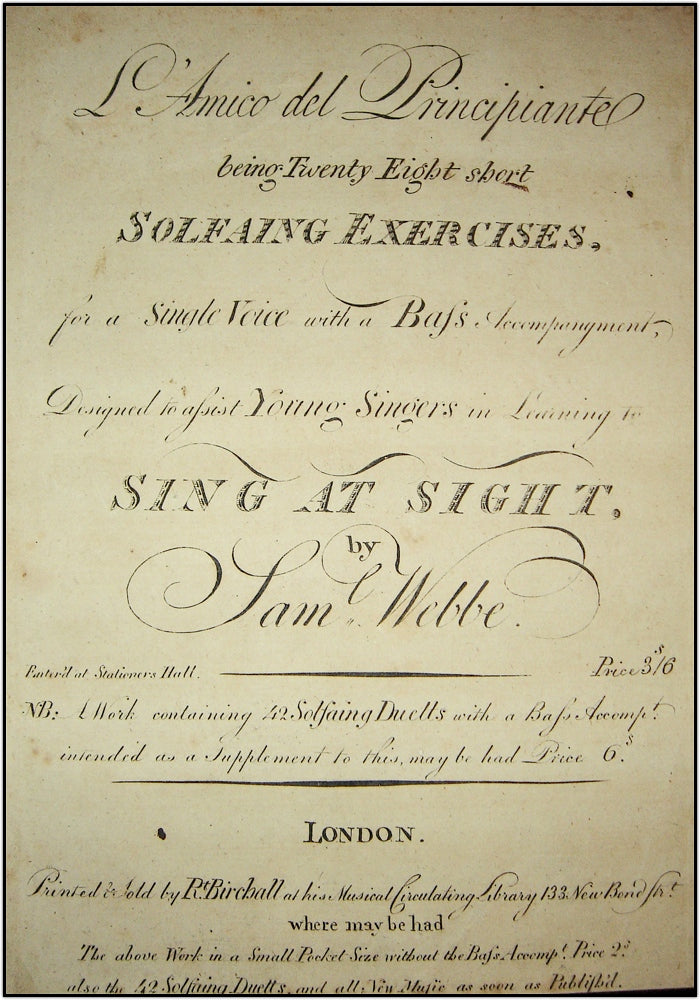 L'Amico del Principiante
being Twenty Eight short
SOLFAING EXERCISES,
for a Single Voice with a Baſs Accompanyment,
Designed to aſsist Young Singers in Learning to
SING AT SIGHT,
by
Saml. Webbe.
Enter'd at Stationers Hall. Price 3s/6
NB: A Work containing 42 Solfaing Duetts with a Baſs Accompt.
intended as a Supplement to this, may be had Price 6.s
LONDON.
Printed & Sold by Rt. Birchall at his Musical Circulating Library 133 New Bond Strt.
where may be had
The above Work in a Small Pocket Size without the Baſs Accompt. Price 2s.
also the 42 Solfaing Duetts, and all New Music as soon as Publish'd.